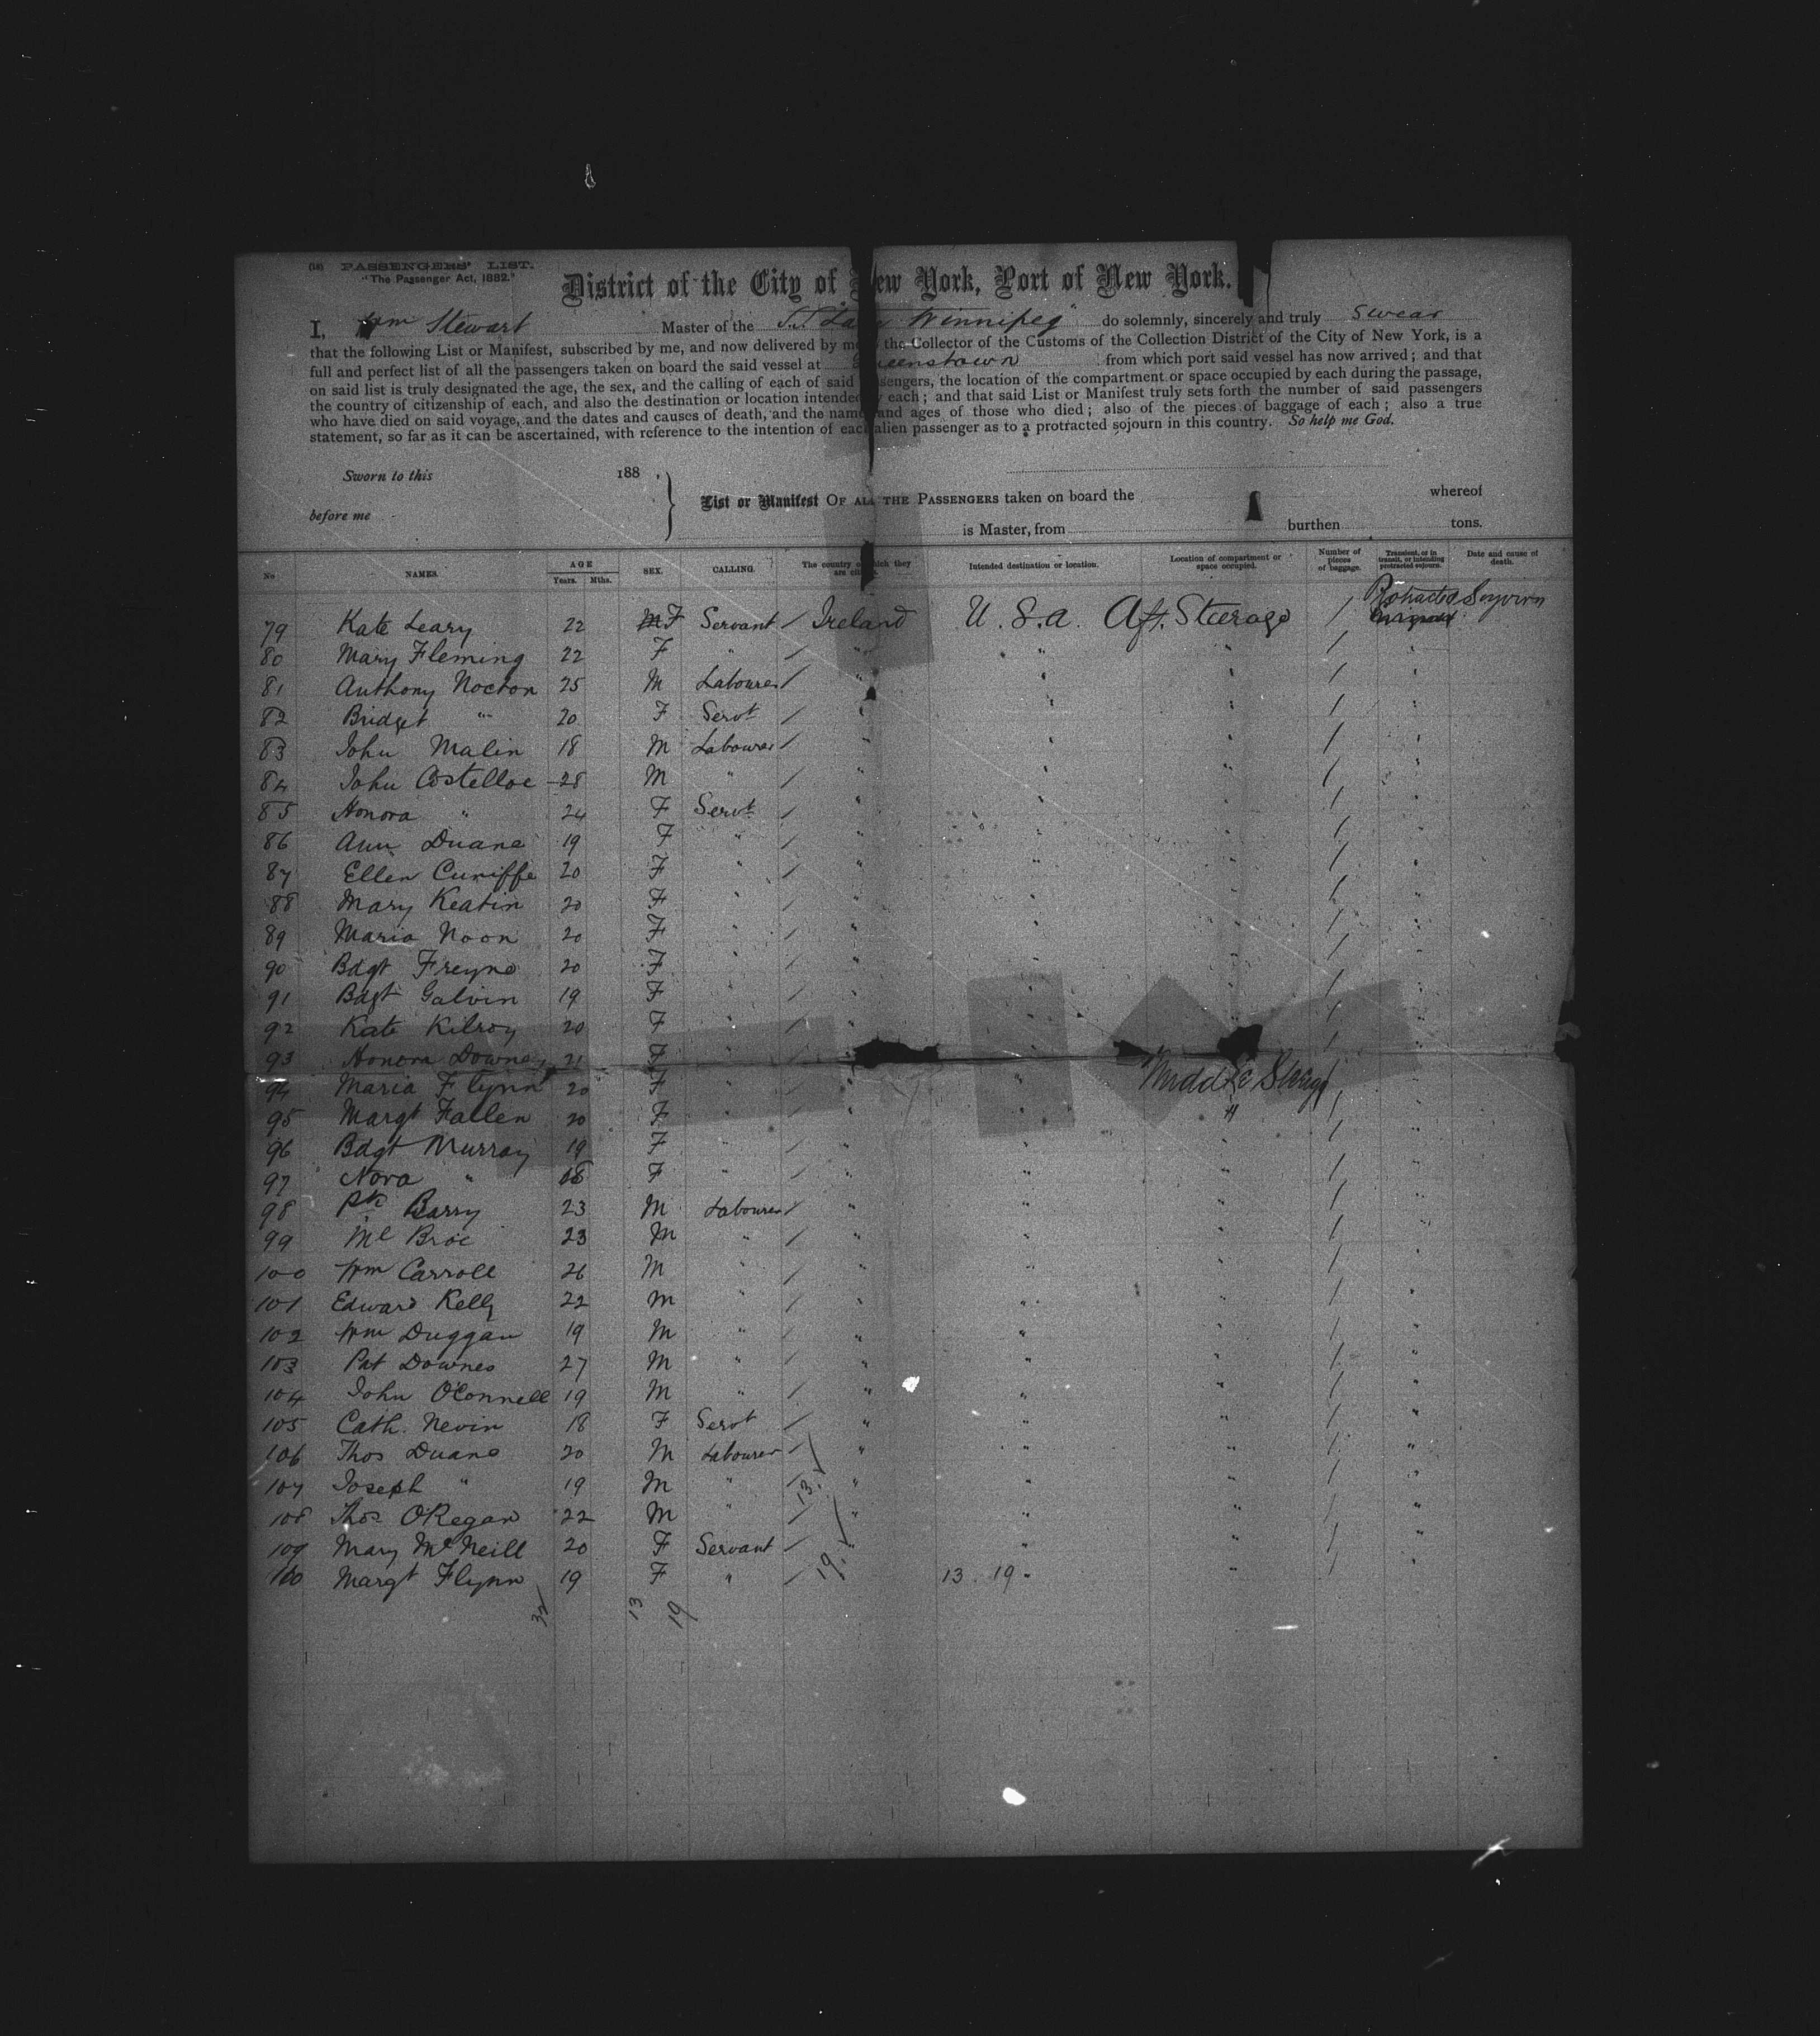 (18) PASSENGERS' LIST.
"The Passenger Act, 1882."
District of the City of New York, Port of New York.
I, Wm Stewart Master of the S.S. Lake Winnipeg" do solemnly, sincerely and truly swear
that the following List or Manifest, subscribed by me, and now delivered by me the Collector of the Customs of the Collection District of the City of New York, is a
full and perfect list of all the passengers taken on board the said vessel at Queenstown from which port said vessel has now arrived; and that
on said list is truly designated the age, the sex, and the calling of each of said passengers, the location of the compartment or space occupied by each during the passage,
the country of citizenship of each, and also the destination or location intended by each; and that said List or Manifest truly sets forth the number of said passengers
who have died on said voyage, and the dates and causes of death, and the name and ages of those who died; also of the pieces of baggage of each; also a true
statement, so far as it can be ascertained, with reference to the intention of each alien passenger as to a protracted sojourn in this country. So help me God.
Sworn to this 188 .
List or Manifest OF ALL THE PASSENGERS taken on board the whereof
before me
is Master, from burthen tons.
No NAMES. AGE Years. Mths. SEX. CALLING. The country of which they are citizens. Intended destination or location. Location of compartment or space occupied. Number of pieces of baggage. Transient, or in transit, or intending protracted sojourn. Date and cause of death.
79 Kate Leary 22 F Servant / Ireland U.S.a. Aft. Steerage / Protracted Sojourn
80 Mary Fleming 22 F " / " " " / "
81 Anthony Nocton 25 M Labourer / " " " / "
82 Bridget " 20 F Servt / " " " / "
83 John Malin 18 M Labourer / " " " / "
84 John Costelloe 28 M " / " " " / "
85 Honora " 24 F Servt / " " " / "
86 Ann Duane 19 F " / " " " / "
87 Ellen Cuniffe 20 F " / " " " / "
88 Mary Keatin 20 F " / " " " / "
89 Maria Noon 20 F " / " " " / "
90 Bdgt Freyne 20 F " / " " " / "
91 Bdgt Galvin 19 F " / " " " / "
92 Kate Kilroy 20 F " / " " " / "
93 Honora Downey 21 F " / " " /
94 Maria Flynn 20 F " / " " Middle Steerage / "
95 Margt Fallen 20 F " / " " " / "
96 Bdgt Murray 19 F " / " " " / "
97 Nora " 18 F " / " " " / "
98 Pk Barry 23 M Labourer / " " " / "
99 Ml Broe 23 M " / " " " / "
100 Wm Carroll 26 M " / " " " / "
101 Edward Kelly 22 M " / " " " / "
102 Wm Duggan 19 M " / " " " / "
103 Pat Downes 27 M " / " " " / "
104 John O'Connell 19 M " / " " " / "
105 Cath. Nevin 18 F Servt / " " " / "
106 Thos Duane 20 M Labourer / " " " / "
107 Joseph " 19 M " / 13 " " " / "
108 Thos O'Regan 22 M " / " " " / "
109 Mary McNeill 20 F Servant / " " " / "
110 Margt Flynn 19 F " / 19 13 19 " " / "
32 13 19